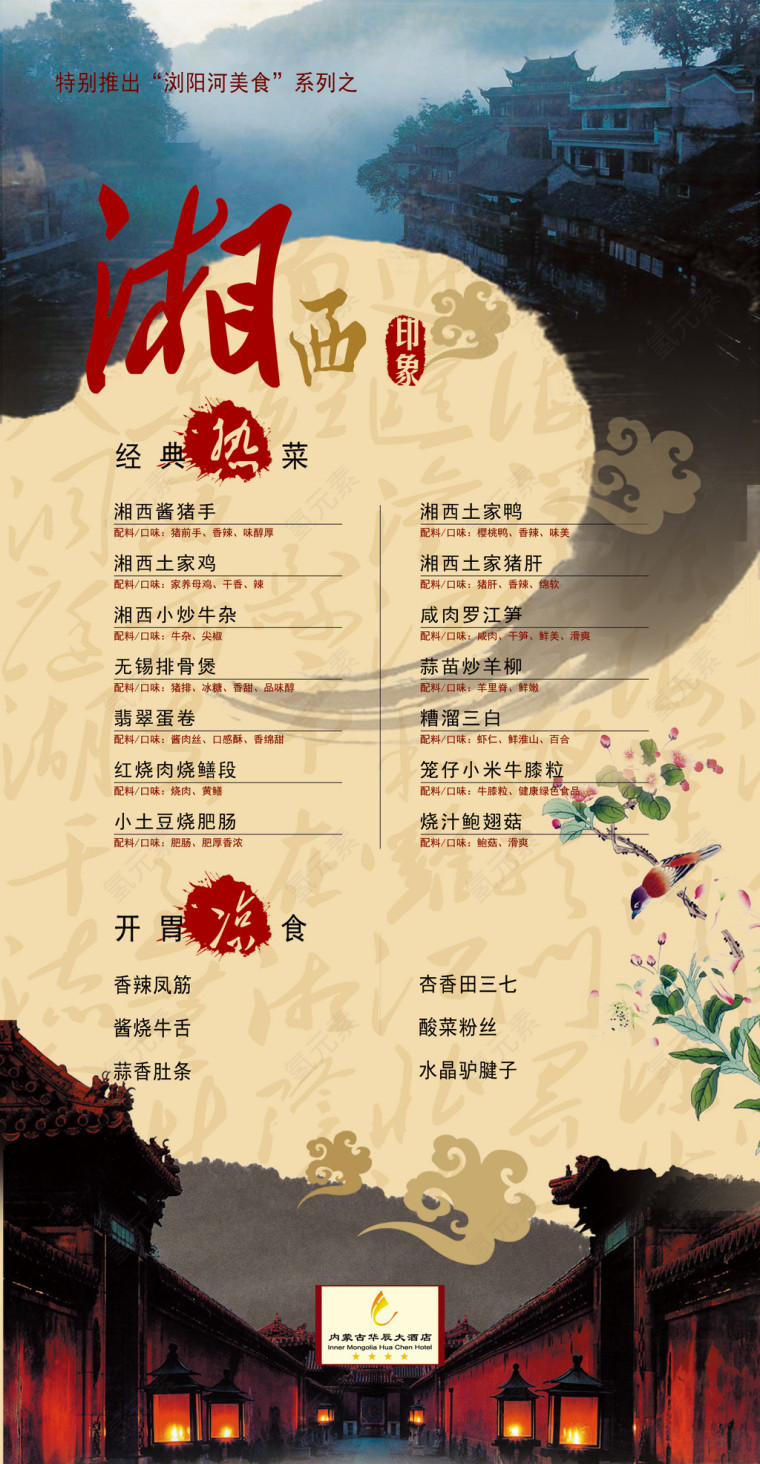 特别推出“浏阳河美食”系列之
湘西
印象
经典热菜
湘西酱猪手
配料/口味：猪前手、香辣、味醇厚
湘西土家鸡
配料/口味：家养母鸡、干香、辣
湘西小炒牛杂
配料/口味：牛杂、尖椒
无锡排骨煲
配料/口味：猪排、冰糖、香甜、品味醇
翡翠蛋卷
配料/口味：酱肉丝、口感酥、香绵甜
红烧肉烧鳝段
配料/口味：烧肉、黄鳝
小土豆烧肥肠
配料/口味：肥肠、肥厚香浓
湘西土家鸭
配料/口味：樱桃鸭、香辣、味美
湘西土家猪肝
配料/口味：猪肝、香辣、绵软
咸肉罗江笋
配料/口味：咸肉、干笋、鲜美、滑爽
蒜苗炒羊柳
配料/口味：羊里脊、鲜嫩
糟溜三白
配料/口味：虾仁、鲜淮山、百合
笼仔小米牛膝粒
配料/口味：牛膝粒、健康绿色食品
烧汁鲍翅菇
配料/口味：鲍菇、滑爽
开胃凉食
香辣凤筋
酱烧牛舌
蒜香肚条
杏香田三七
酸菜粉丝
水晶驴腱子
内蒙古华辰大酒店
Inner Mongolia Hua Chen Hotel